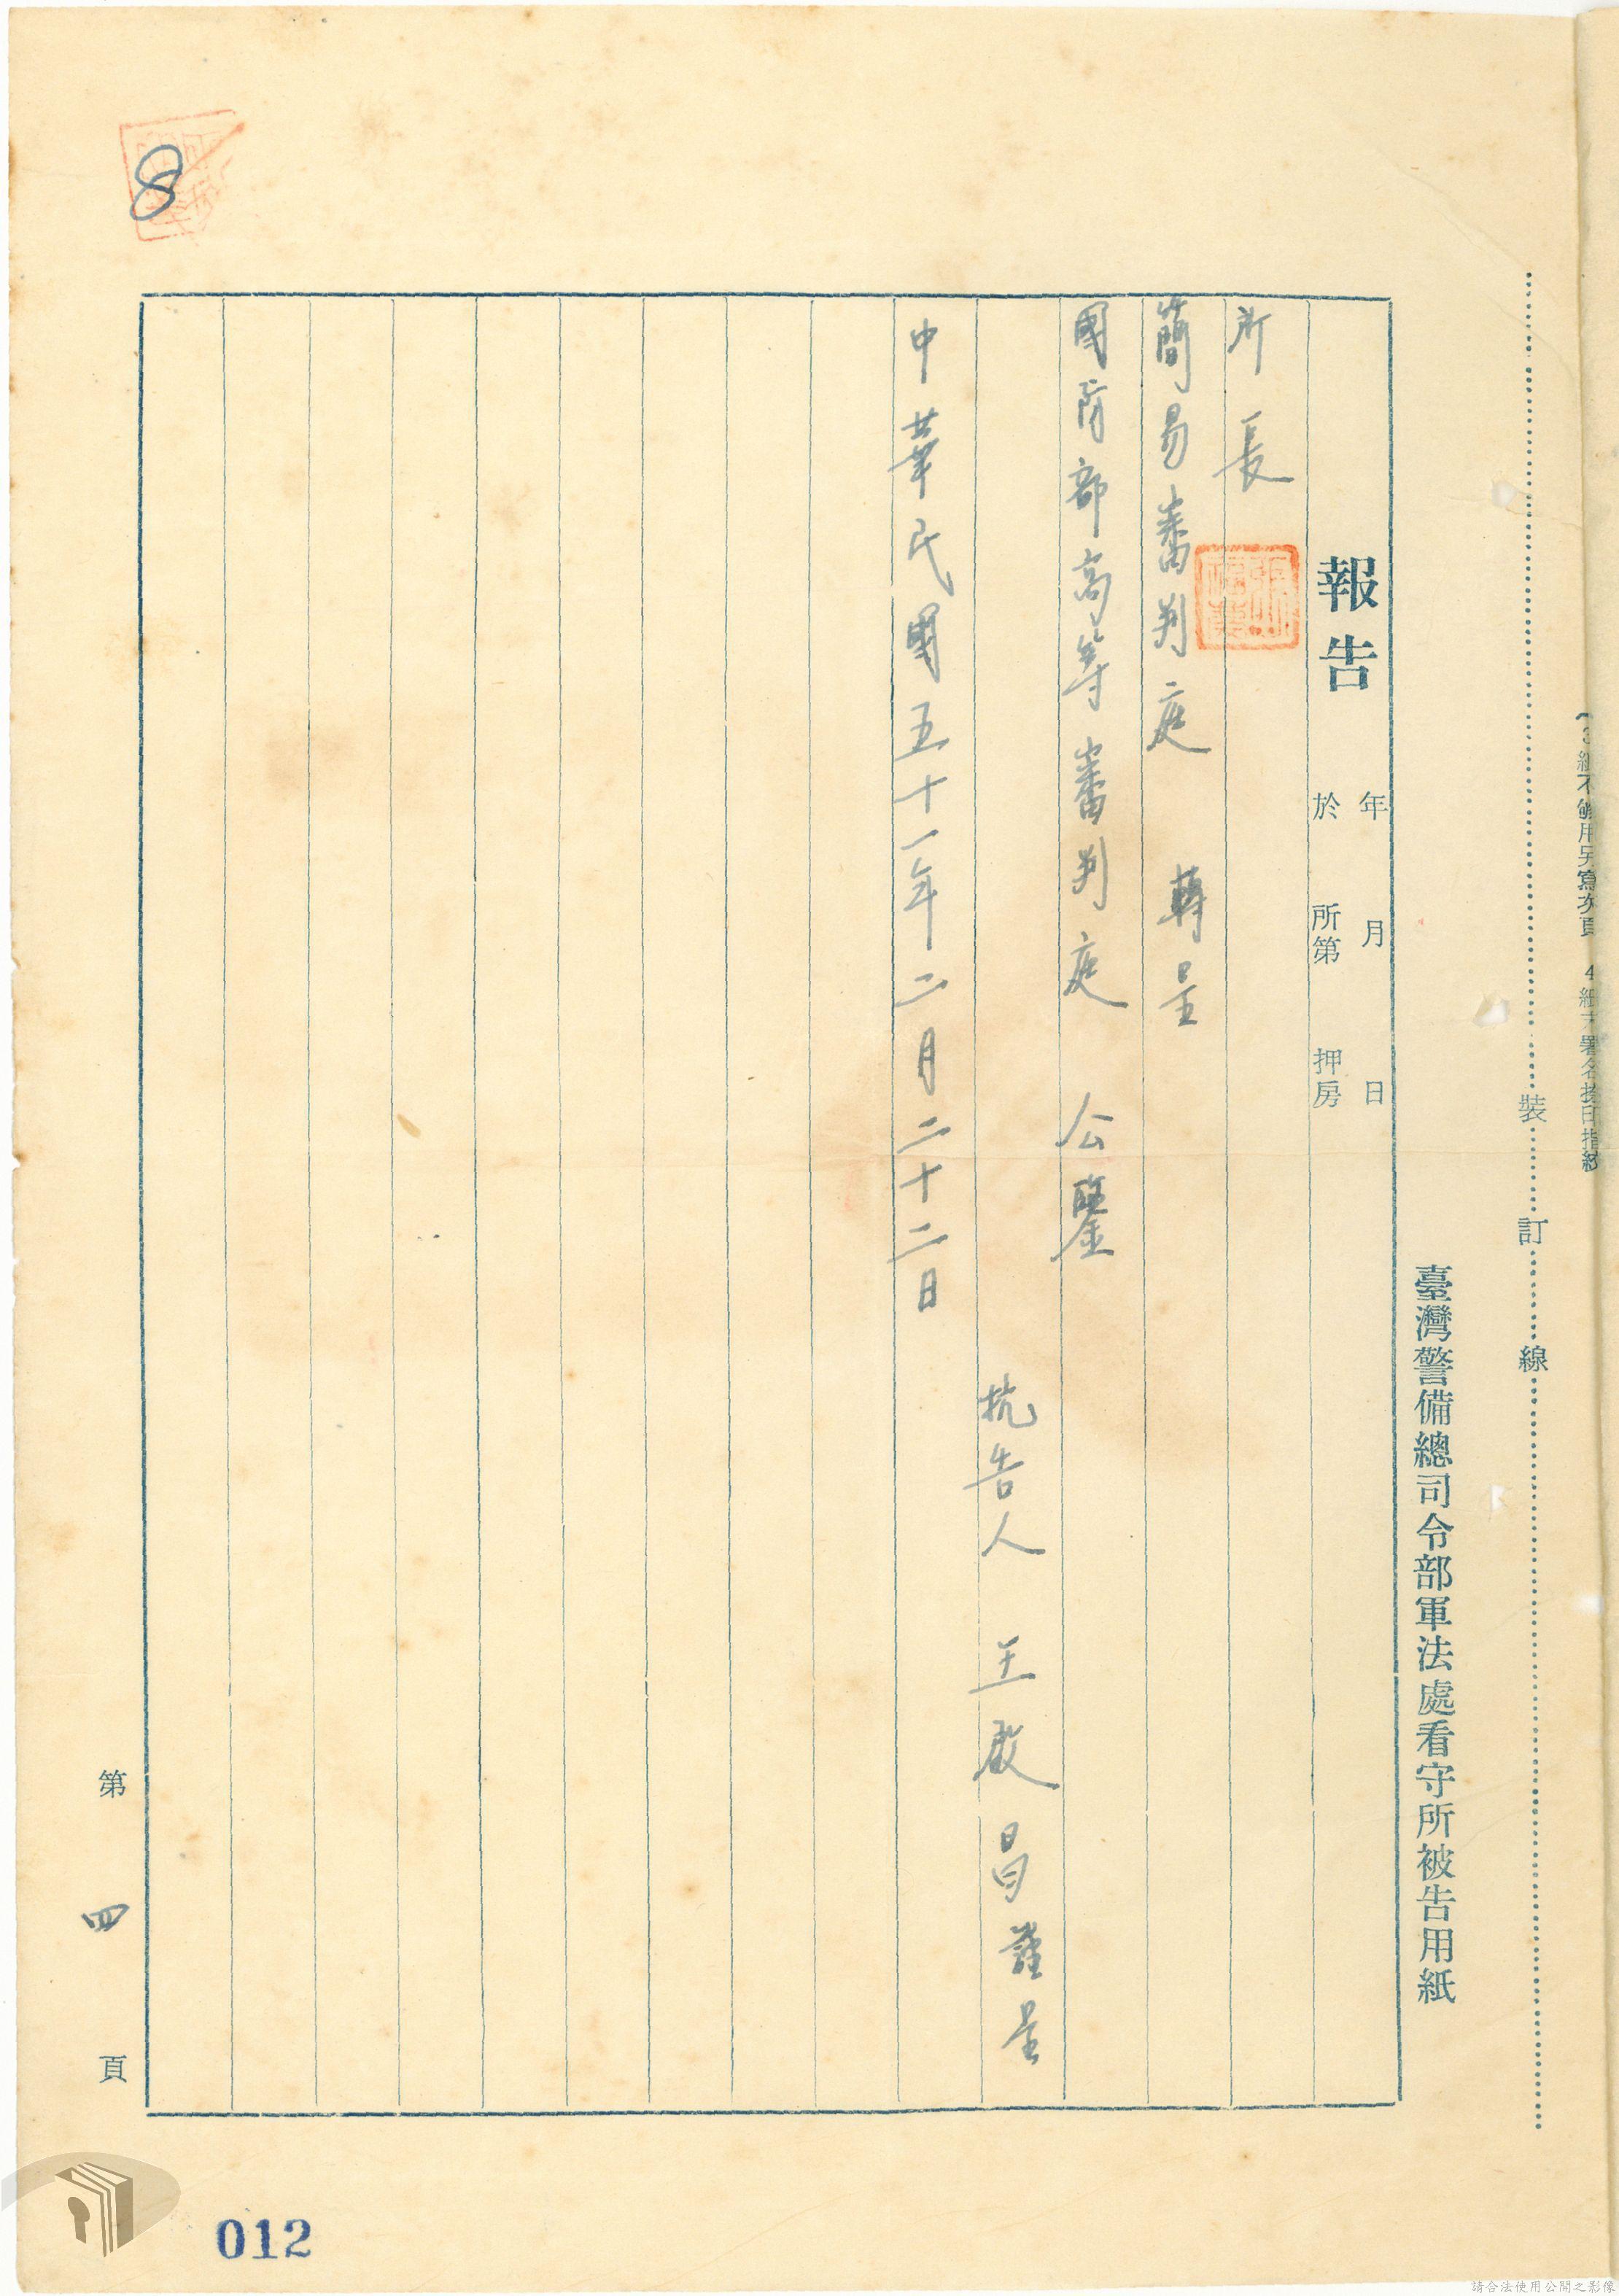 3 紙不够用另寫次頁 4 紙末署名捺印指紋
裝訂線
臺灣警備總司令部軍法處看守所被告用紙
報告 年 月 日
於 所第 押房
所長
簡易審判庭 轉呈
國防部高等審判庭 公鑒
抗告人 王啟昌謹呈
中華民國五十一年二月二十二日
第四頁
8
012
請合法使用公開之影像